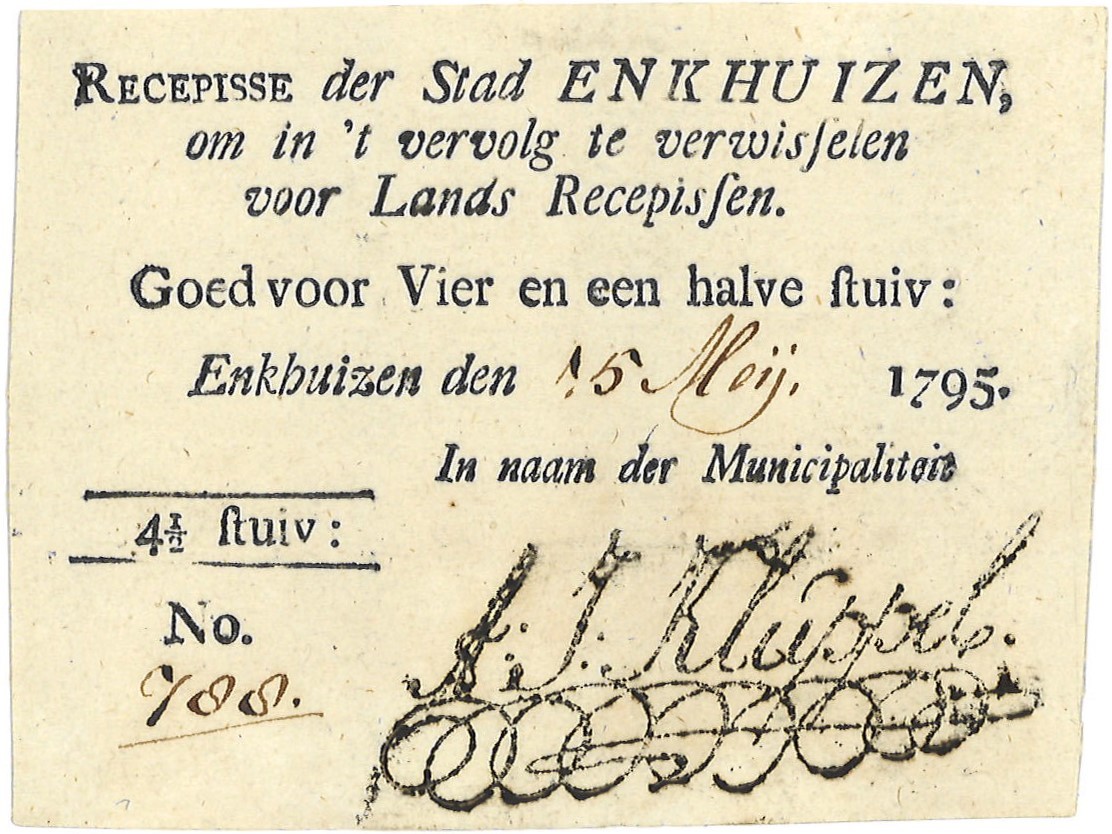 RECEPISSE der Stad ENKHUIZEN,
om in 't vervolg te verwisſelen
voor Lands Recepisſen.
Goed voor Vier en een halve ſtuiv:
Enkhuizen den 15 Meij. 1795.
In naam der Municipaliteit
4½ ſtuiv:
A: J: Kluppel.
No.
788.